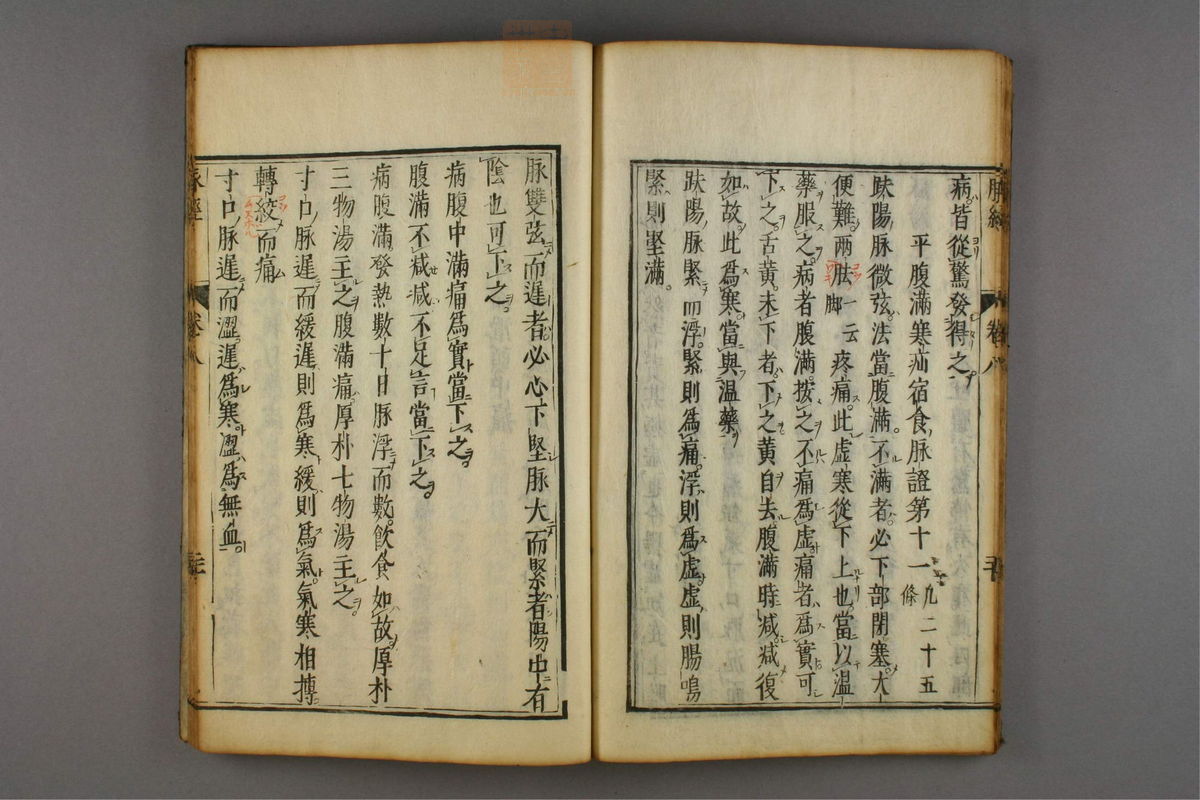 病皆從驚發得之
平腹滿寒疝宿食脉證第十一凡二十五條
趺陽脉微弦法當腹滿不滿者必下部閉塞大
便難兩胠一云脚疼痛此虛寒從下上也當以温
藥服之病者腹滿按之不痛爲虛痛者爲實可
下之舌黄未下者下之黄自去腹滿時减减復
如故此爲寒當與温藥
趺陽脉緊而浮緊則爲痛浮則爲虛虛則腸鳴
緊則堅滿
脉雙弦而遲者必心下堅脉大而緊者陽中有
陰也可下之
病腹中滿痛爲實當下之
腹滿不减减不足言當下之
病腹滿發熱數十日脉浮而數飲食如故厚朴
三物湯主之腹滿痛厚朴七物湯主之
寸口脉遲而緩遲則爲寒緩則爲氣氣寒相摶
轉絞而痛
寸口脉遲而澀遲爲寒澀爲無血
脉經
卷八